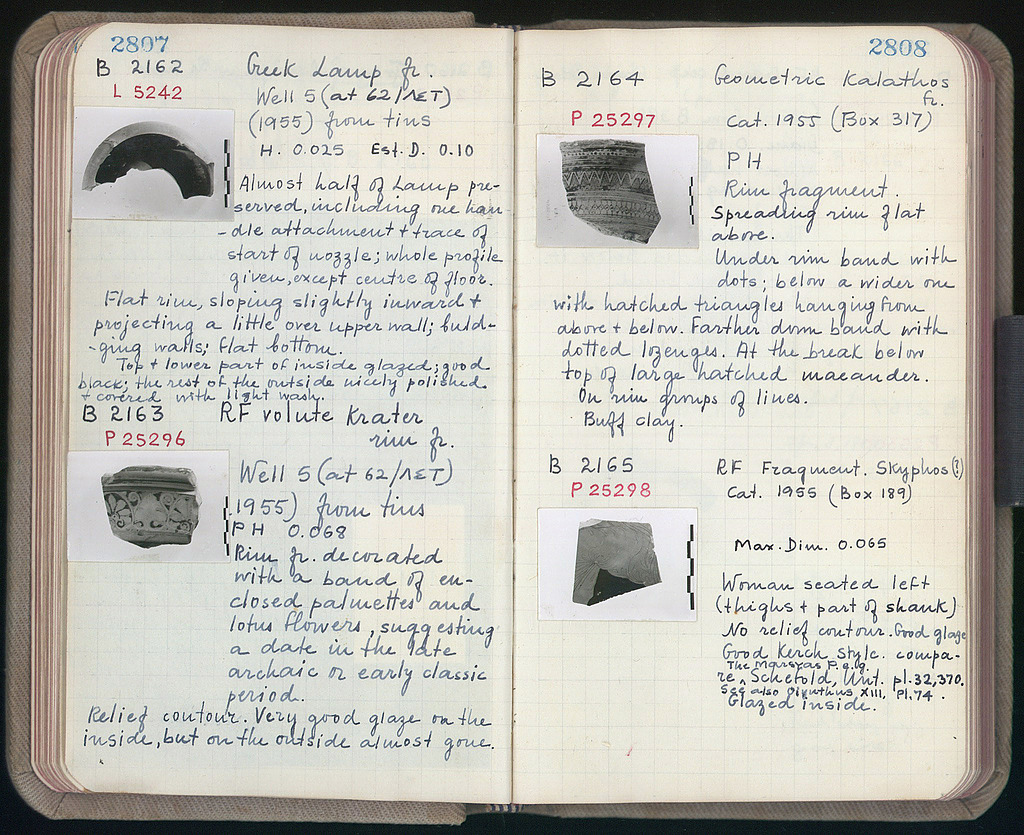 2807
B 2162 Greek Lamp fr.
L 5242
Well 5 (at 62/ΛΣΤ)
(1955) from tins
H. 0.025 Est. D. 0.10
Almost half of Lamp pre-
served, including one han-
-dle attachment + trace of
start of nozzle; whole profile
given, except centre of floor.
Flat rim, sloping slightly inward +
projecting a little over upper wall; buld-
-ging walls; flat bottom.
Top + lower part of inside glazed; good
black; the rest of the outside nicely polished
+ covered with light wash.
B 2163 RF volute Krater
P 25296 rim fr.
Well 5 (at 62/ΛΣΤ)
1955) from tins
PH 0.068
Rim fr. decorated
with a band of en-
closed palmettes and
lotus flowers, suggesting
a date in the late
archaic or early classic
period.
Relief contour. Very good glaze on the
inside, but on the outside almost gone.
2808
B 2164 Geometric Kalathos
fr.
P 25297 Cat. 1955 (Box 317)
PH
Rim fragment.
Spreading rim flat
above.
Under rim band with
dots; below a wider one
with hatched triangles hanging from
above + below. Farther down band with
dotted lozenges. At the break below
top of large hatched maeander.
On rim groups of lines.
Buff clay.
B 2165 RF Fragment. Skyphos (?)
P 25298 Cat. 1955 (Box 189)
Max. Dim. 0.065
Woman seated left
(thighs + part of shank)
No relief contour. Good glaze
Good Kerch style. compa-
The Marsyas P. e.g.
re ^ Schefold, Unt. pl. 32, 370.
See also Olynthus XIII, Pl. 74.
Glazed inside.